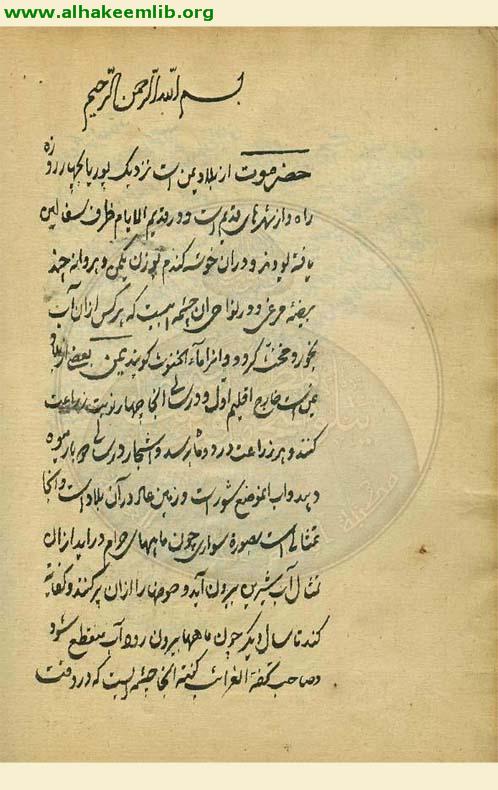 www.alhakeemlib.org
بسم الله الرحمن الرحیم
حضرموت از بلاد یمن است نزدیک بوریا بچهار روزه
راه و از شهرهای قدیم است و در قدیم الایام ظرف سفالین
یافته بودند و در آن خوشه کندم بوزن یکمن و هر دانه چند
بیضه مرغی و در نواحی آن چشمه ایست که هر کس از آن آب
بخورد مخنث کردد و آنرا ماء الخنوث کویند یمن بعضی از بلاد
است خارج اقلیم اول و در سالی آنجا چهار نوبت زراعت
کنند و هر زراعت در دو ماه رسد و اشجار در سالی دو بار میوه
دهد و آب آنموضع شور است و زمین در آن بلاد است و آنجا
تمثالی است بصورة سواری چون ماههای حرام در آید از آن
تمثال آب شیرین بیرون آید و حوضها را از آن پر کنند و کفایة
کند تا سال دیکر چون ماهها بیرون رود آب منقطع شود
و صاحب تحفة الغرائب کفته آنجا چشمه ایست که در وقت